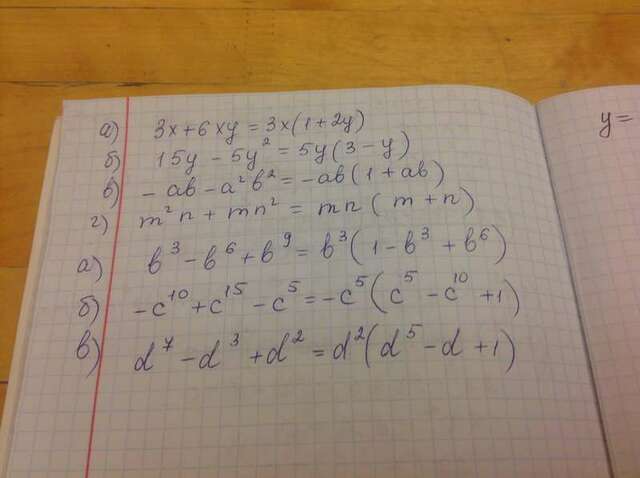 а) 3x+6xy=3x(1+2y)
б) 15y-5y²=5y(3-y)
в) -ab-a²b²=-ab(1+ab)
г) m²n+mn²=mn(m+n)
а) b³-b⁶+b⁹=b³(1-b³+b⁶)
б) -c¹⁰+c¹⁵-c⁵=-c⁵(c⁵-c¹⁰+1)
в) d⁷-d³+d²=d²(d⁵-d+1)
y=